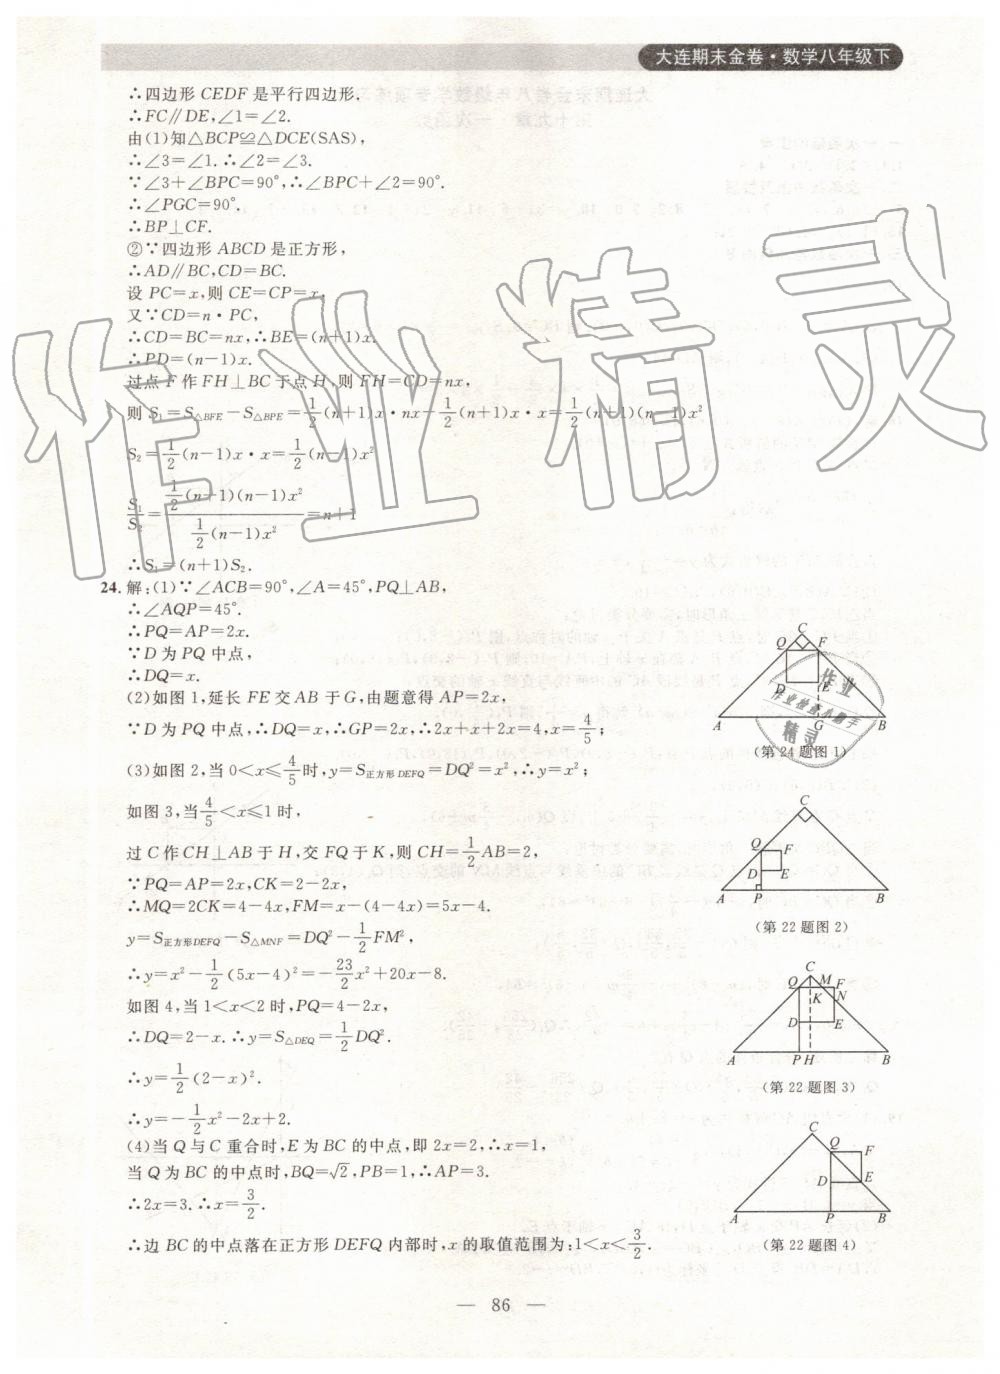 大连期末金卷·数学八年级下
∴四边形CEDF是平行四边形.
∴FC∥DE,∠1=∠2.
由(1)知△BCP≌△DCE(SAS),
∴∠3=∠1.∴∠2=∠3.
∵∠3+∠BPC=90°,∴∠BPC+∠2=90°.
∴∠PGC=90°.
∴BP⊥CF.
②∵四边形ABCD是正方形,
∴AD∥BC,CD=BC.
设PC=x,则CE=CP=x.
又∵CD=n·PC,
∴CD=BC=nx,∴BE=(n+1)x.
∴PD=(n-1)x.
过点F作FH⊥BC于点H,则FH=CD=nx,
则S₁=S△BFE-S△BPE=1/2(n+1)x·nx-1/2(n+1)x·x=1/2(n+1)(n-1)x²
S₂=1/2(n-1)x·x=1/2(n-1)x²
S₁/S₂=(1/2(n+1)(n-1)x²)/(1/2(n-1)x²)=n+1
∴S₁=(n+1)S₂.
24.解:(1)∵∠ACB=90°,∠A=45°,PQ⊥AB,
∴∠AQP=45°.
∴PQ=AP=2x.
∵D为PQ中点,
∴DQ=x.
(2)如图1,延长FE交AB于G,由题意得AP=2x,
∵D为PQ中点,∴DQ=x,∴GP=2x,∴2x+x+2x=4,x=4/5;
(3)如图2,当0<x≤4/5时,y=S正方形DEFQ=DQ²=x²,∴y=x²;
如图3,当4/5<x≤1时,
过C作CH⊥AB于H,交FQ于K,则CH=1/2AB=2,
∵PQ=AP=2x,CK=2-2x,
∴MQ=2CK=4-4x,FM=x-(4-4x)=5x-4.
y=S正方形DEFQ-S△MNF=DQ²-1/2FM²,
∴y=x²-1/2(5x-4)²=-23/2x²+20x-8.
如图4,当1<x<2时,PQ=4-2x,
∴DQ=2-x.∴y=S△DEQ=1/2DQ².
∴y=1/2(2-x)².
∴y=-1/2x²-2x+2.
(4)当Q与C重合时,E为BC的中点,即2x=2,∴x=1,
当Q为BC的中点时,BQ=√2,PB=1,∴AP=3.
∴2x=3.∴x=3/2.
∴边BC的中点落在正方形DEFQ内部时,x的取值范围为:1<x<3/2.
C
Q F
D E
A G B
(第24题图1)
C
Q F
D E
A P B
(第22题图2)
C
Q M F
K N
D E
A P H B
(第22题图3)
C
Q F
D E
A P B
(第22题图4)
— 86 —
作业精灵
作业
作业检查小助手
精灵